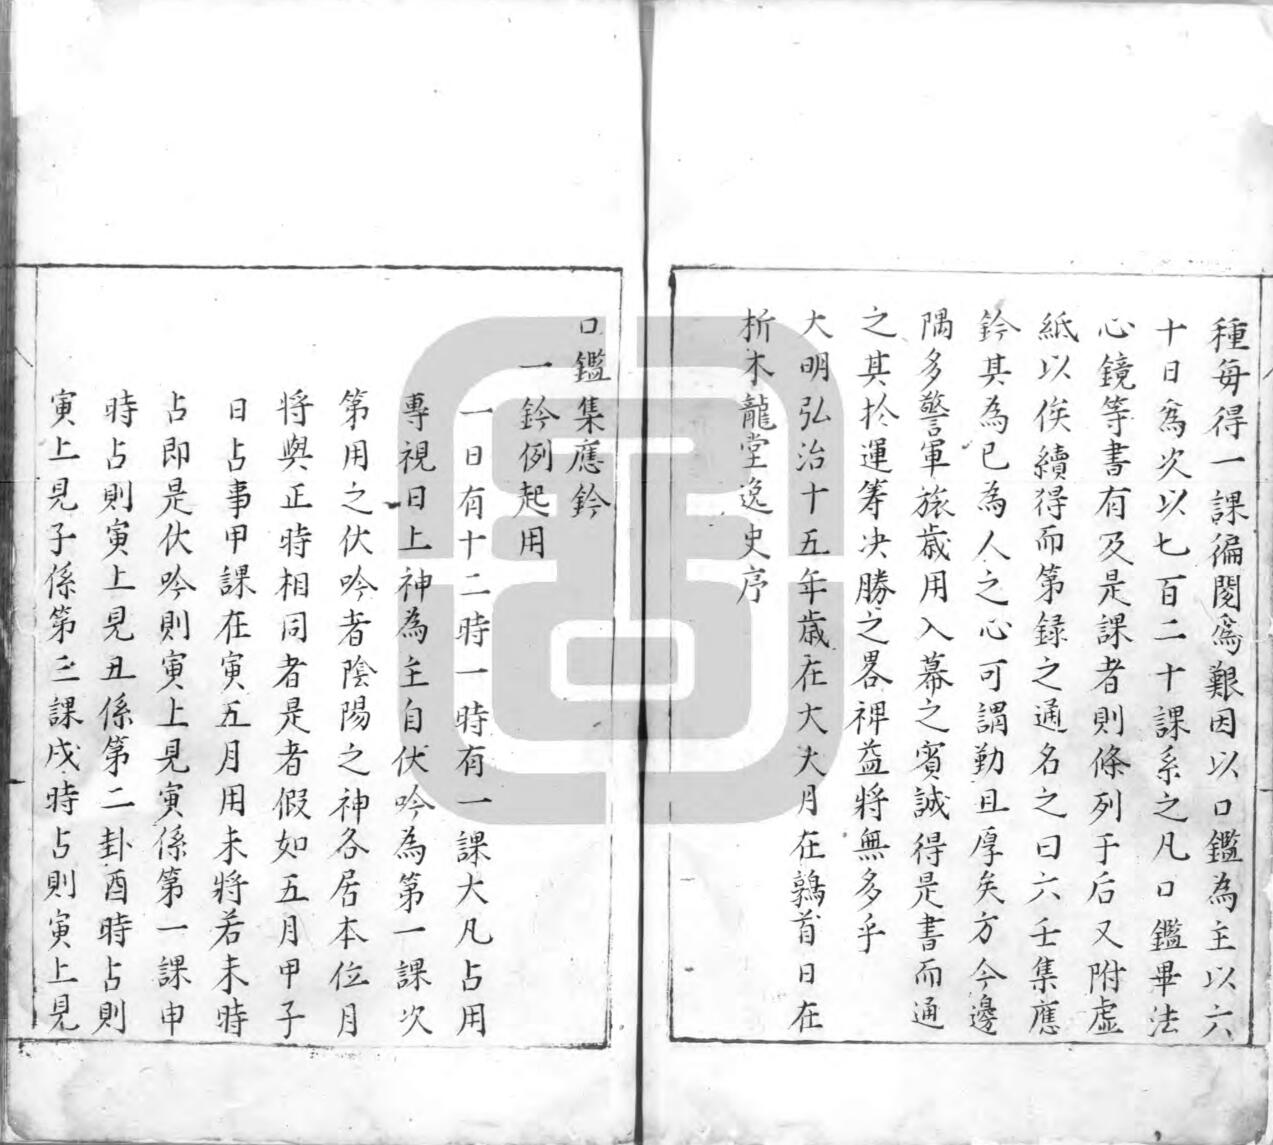 種每得一課徧閱爲艱因以口鑑為主以六
十日爲次以七百二十課系之凡口鑑畢法
心鏡等書有及是課者則條列于后又附虛
紙以俟續得而第録之通名之曰六壬集應
鈐其為已為人之心可謂勤且厚矣方今邊
隅多警軍旅歲用入幕之賓誠得是書而通
之其扵運筹决勝之畧裨益將無多乎
大明弘治十五年歲在大大月在鶉首日在
析木龍堂逸史序
口鑑集應鈐
一鈐例起用
一日有十二時一時有一課大凡占用
專視日上神為主自伏吟為第一課次
第用之伏吟者陰陽之神各居本位月
將與正時相同者是者假如五月甲子
日占事甲課在寅五月用未將若未時
占即是伏吟則寅上見寅係第一課申
時占則寅上見丑係第二卦酉時占則
寅上見子係第三課戌時占則寅上見